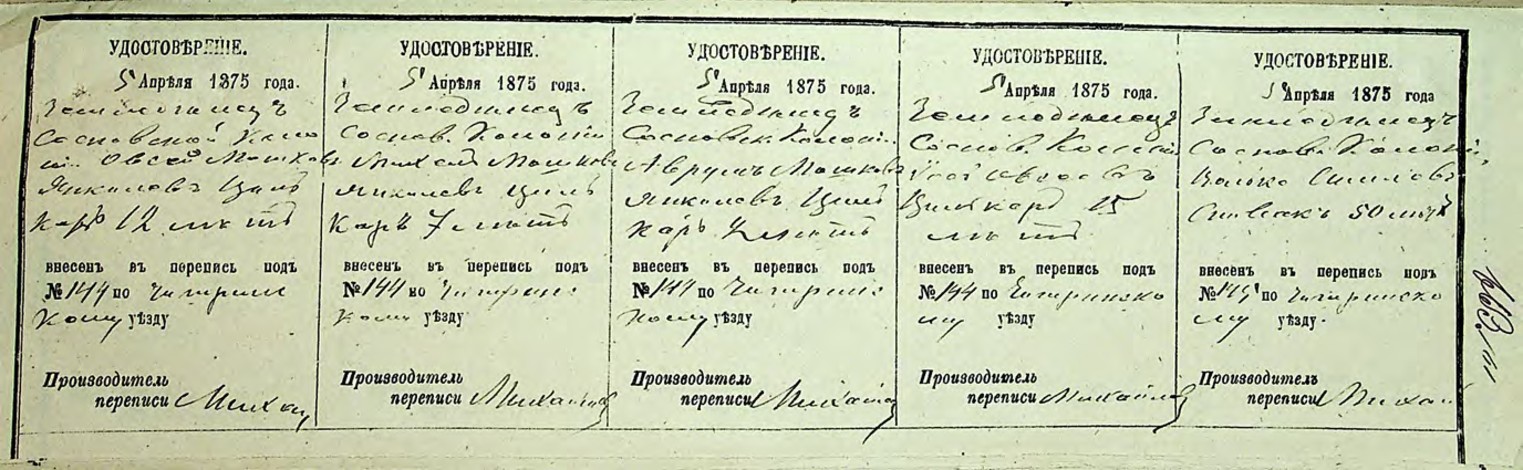 УДОСТОВѢРЕНІЕ.
5 Апрѣля 1875 года.
Землепашецъ
Сосновской Коло
ніи Овсей Мошков
Янкилевъ Цинъ
каръ 12 лѣтъ
внесенъ въ перепись подъ
№ 144 по Чигринс
кому уѣзду
Производитель
переписи Михай
УДОСТОВѢРЕНІЕ.
5 Апрѣля 1875 года.
Соснов. Колоніи
Михель Мошков
Янкилевъ Цинъ
каръ 7 лѣтъ
внесенъ въ перепись подъ
№ 144 по Чигринс
кому уѣзду
Производитель
переписи Михайлов
УДОСТОВѢРЕНІЕ.
5 Апрѣля 1875 года.
Сосновск. Колоніи
Аврумъ Мошков
Янкилевъ Цинъ
каръ лѣтъ
внесенъ въ перепись подъ
№ 144 по Чигринс
кому уѣзду
Производитель
переписи Михайлов
УДОСТОВѢРЕНІЕ.
5 Апрѣля 1875 года.
Соснов. Колоніи
15
лѣтъ
внесенъ въ перепись подъ
№ 144 по Чигринско
му уѣзду
Производитель
переписи Михайлов
УДОСТОВѢРЕНІЕ.
5 Апрѣля 1875 года
Соснов. Колоніи,
Волько
Спивакъ 50 лѣтъ
внесенъ въ перепись подъ
№ 145 по Чигринско
му уѣзду
Производитель
переписи Михай